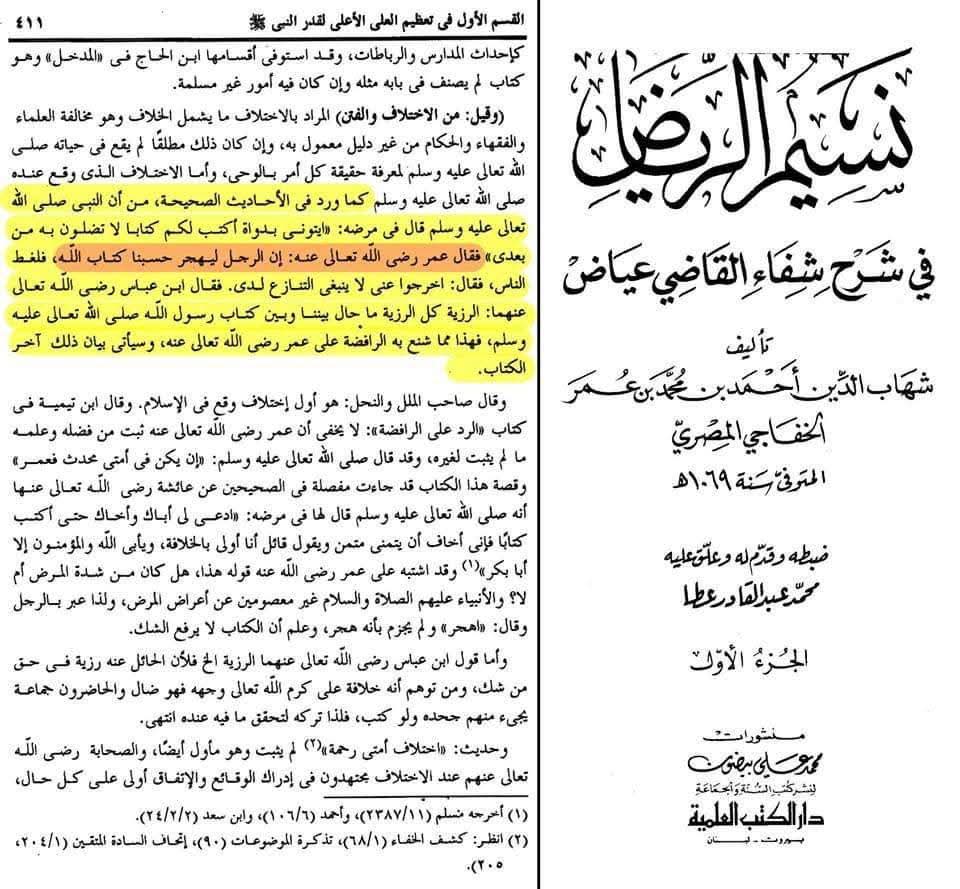 القسم الأول فى تعظيم العلى الأعلى لقدر النبى ﷺ
٤١١
كإحداث المدارس والرباطات، وقد استوفى أقسامها ابن الحاج فى «المدخل» وهو
كتاب لم يصنف فى بابه مثله وإن كان فيه أمور غير مسلمة.
(وقيل: من الاختلاف والفتن) المراد بالاختلاف ما يشمل الخلاف وهو مخالفة العلماء
والفقهاء والحكام من غير دليل معمول به، وإن كان ذلك مطلقًا لم يقع فى حياته صلى
الله تعالى عليه وسلم لمعرفة حقيقة كل أمر بالوحى، وأما الاختلاف الذى وقع عنده
صلى الله تعالى عليه وسلم كما ورد فى الأحاديث الصحيحة، من أن النبى صلى الله
تعالى عليه وسلم قال فى مرضه: «ايتونى بدواة أكتب لكم كتابا لا تضلون به من
بعدى» فقال عمر رضى الله تعالى عنه: إن الرجل ليهجر حسبنا كتاب الله، فلغط
الناس، فقال: اخرجوا عنى لا ينبغى التنازع لدى. فقال ابن عباس رضى الله تعالى
عنهما: الرزية كل الرزية ما حال بيننا وبين كتاب رسول الله صلى الله تعالى عليه
وسلم، فهذا مما شنع به الرافضة على عمر رضى الله تعالى عنه، وسيأتى بيان ذلك آخر
الكتاب.
وقال صاحب الملل والنحل: هو أول إختلاف وقع فى الإسلام. وقال ابن تيمية فى
كتاب «الرد على الرافضة»: لا يخفى أن عمر رضى الله تعالى عنه ثبت من فضله وعلمه
ما لم يثبت لغيره، وقد قال صلى الله تعالى عليه وسلم: «إن يكن فى أمتى محدث فعمر»
وقصة هذا الكتاب قد جاءت مفصلة فى الصحيحين عن عائشة رضى الله تعالى عنها
أنه صلى الله تعالى عليه وسلم قال لها فى مرضه: «ادعى لى أباك وأخاك حتى أكتب
كتابًا فإنى أخاف أن يتمنى متمن ويقول قائل أنا أولى بالخلافة، ويأبى الله والمؤمنون إلا
أبا بكر»(١) وقد اشتبه على عمر رضى الله عنه قوله هذا، هل كان من شدة المرض أم
لا؟ والأنبياء عليهم الصلاة والسلام غير معصومين عن أعراض المرض، ولذا عبر بالرجل
وقال: «اهجر» ولم يجزم بأنه هجر، وعلم أن الكتاب لا يرفع الشك.
وأما قول ابن عباس رضى الله تعالى عنهما الرزية الخ فلأن الحائل عنه رزية فى حق
من شك، ومن توهم أنه خلافة على كرم الله تعالى وجهه فهو ضال والحاضرون جماعة
يجىء منهم جحده ولو كتب، فلذا تركه لتحقق ما فيه عنده انتهى.
وحديث: «اختلاف أمتى رحمة»(٢) لم يثبت وهو مأول أيضًا، والصحابة رضى الله
تعالى عنهم عند الاختلاف مجتهدون فى إدراك الوقائع والإتفاق أولى على كل حال،
(١) أخرجه مسلم (٢٣٨٧/١١)، وأحمد (١٠٦/٦)، وابن سعد (٢٤/٢/٢).
(٢) انظر: كشف الخفاء (٦٨/١)، تذكرة الموضوعات (٩٠)، إتحاف السادة المتقين (٢٠٤/١،
٢٠٥).
نسيم الرياض
في شرح شفاء القاضي عياض
تأليف
شهاب الدين أحمد بن محمد بن عمر
الخفاجي المصري
المتوفى سنة ١٠٦٩ھ
ضبطه وقدم له وعلق عليه
محمد عبد القادر عطا
الجزء الأول
منشورات
محمد علي بيضون
لنشر كتب السنة والجماعة
دار الكتب العلمية
بيروت - لبنان